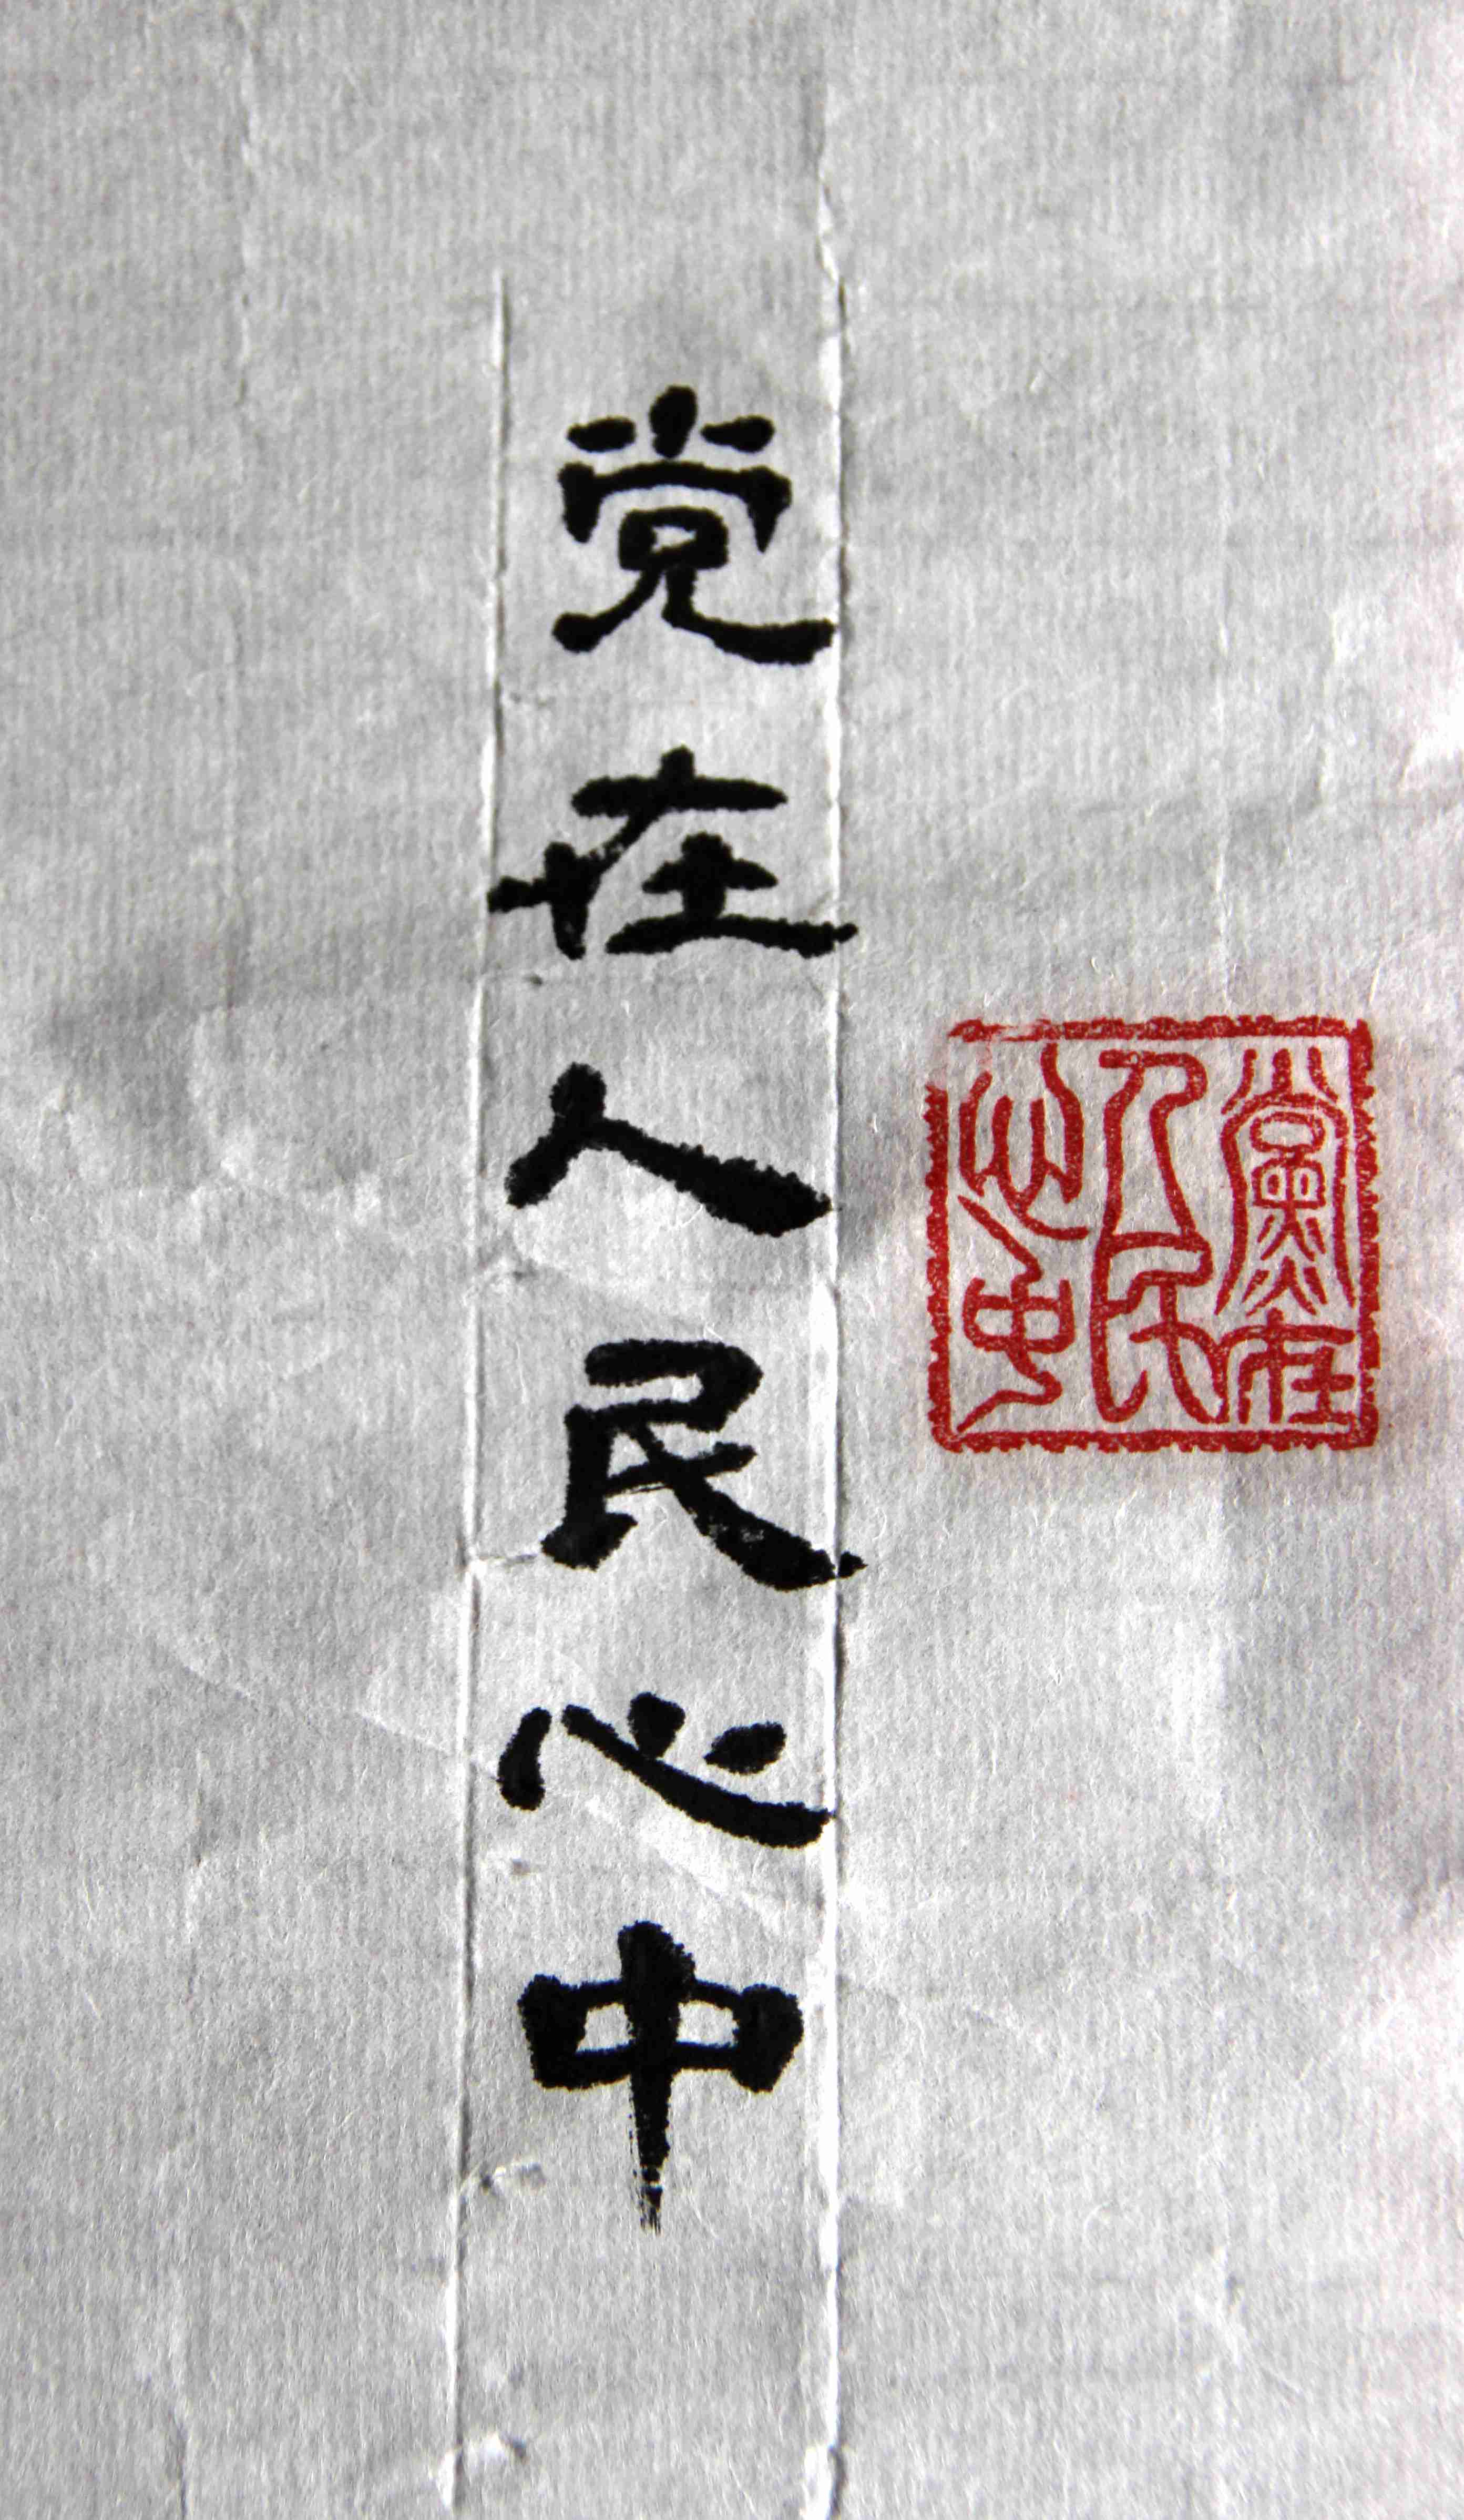 党在人民心中
黨在
人民
心中